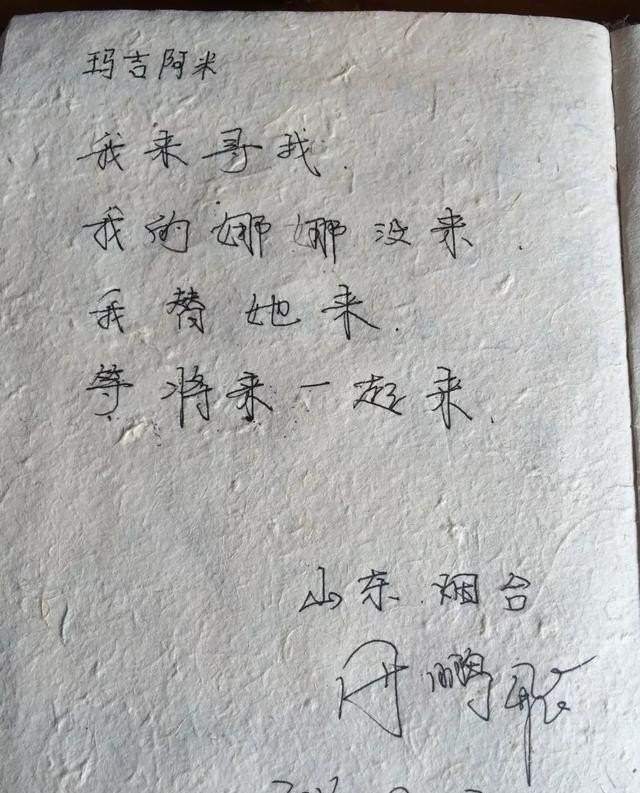 玛吉阿米
我来寻我.
我的娜娜没来.
我替她来.
等将来一起来.
山东.烟台
鹏